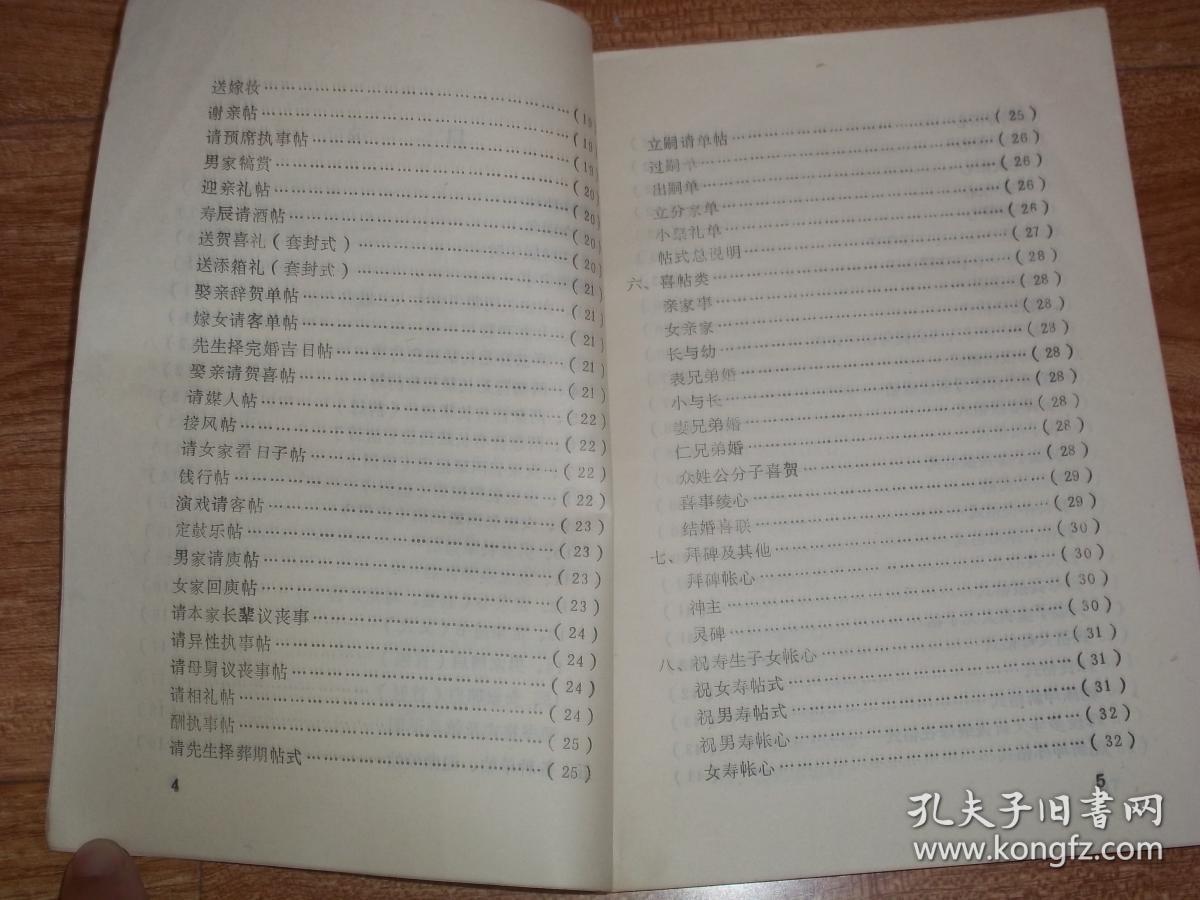 送嫁妆……(19)
谢亲帖……(19)
请预席执事帖……(19)
男家犒赏……(20)
迎亲礼帖……(20)
寿辰请酒帖……(20)
送贺喜礼(套封式)……(20)
送添箱礼(套封式)……(21)
娶亲辞贺单帖……(21)
嫁女请客单帖……(21)
先生择完婚吉日帖……(21)
娶亲请贺喜帖……(21)
请媒人帖……(22)
接风帖……(22)
请女家看日子帖……(22)
饯行帖……(22)
演戏请客帖……(23)
定鼓乐帖……(23)
男家请庚帖……(23)
女家回庚帖……(23)
请本家长辈议丧事……(24)
请异性执事帖……(24)
请母舅议丧事帖……(24)
请相礼帖……(24)
酬执事帖……(25)
请先生择葬期帖式……(25)
4
立嗣请单帖……(25)
过嗣单……(26)
出嗣单……(26)
立分家单……(26)
小祭礼单……(26)
帖式总说明……(27)
六、喜帖类……(28)
亲家事……(28)
女亲家……(28)
长与幼……(28)
表兄弟婚……(28)
小与长……(28)
妻兄弟婚……(28)
仁兄弟婚……(28)
众姓公分子喜贺……(28)
喜事绫心……(29)
结婚喜联……(29)
七、拜碑及其他……(30)
拜碑帐心……(30)
神主……(30)
灵碑……(30)
八、祝寿生子女帐心……(31)
祝女寿帖式……(31)
祝男寿帖式……(31)
祝男寿帐心……(32)
女寿帐心……(32)
5
孔夫子旧书网
www.kongfz.com